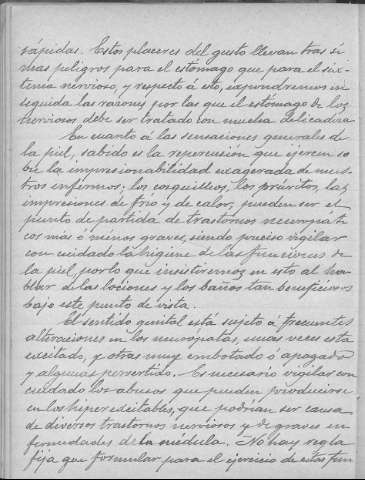 rápidas. Estos placeres del gusto llevan tras sí
mas peligros para el estómago que para el sis-
tema nervioso, y respecto á esto, expondremos en
seguida las razones por las que el estómago de los
nerviosos debe ser tratado con mucha delicadeza
En cuanto á las sensaciones generales de
la piel, sabido es la repercusión que ejercen so-
bre la impresionabilidad exagerada de nues-
tros enfermos; los cosquilleos, los pruritos, las
impresiones de frío y de calor, pueden ser el
punto de partida de trastornos neuropáti-
cos más ó menos graves, siendo preciso vigilar
con cuidado la higiene de las funciones de
la piel, por lo que insistiremos en esto al ha-
blar de las lociones y los baños tan beneficiosos
bajo este punto de vista.
El sentido genital está sujeto á frecuentes
alteraciones en los neurópatas, unas veces está
excitado, y otras muy embotado ó apagado
y algunas pervertido. Es necesario vigilar con
cuidado los abusos que pueden producirse
en los hiperexcitables, que podrían ser causa
de diversos trastornos nerviosos y de graves en-
fermedades de la médula. No hay regla
fija que formular para el ejercicio de estas fun